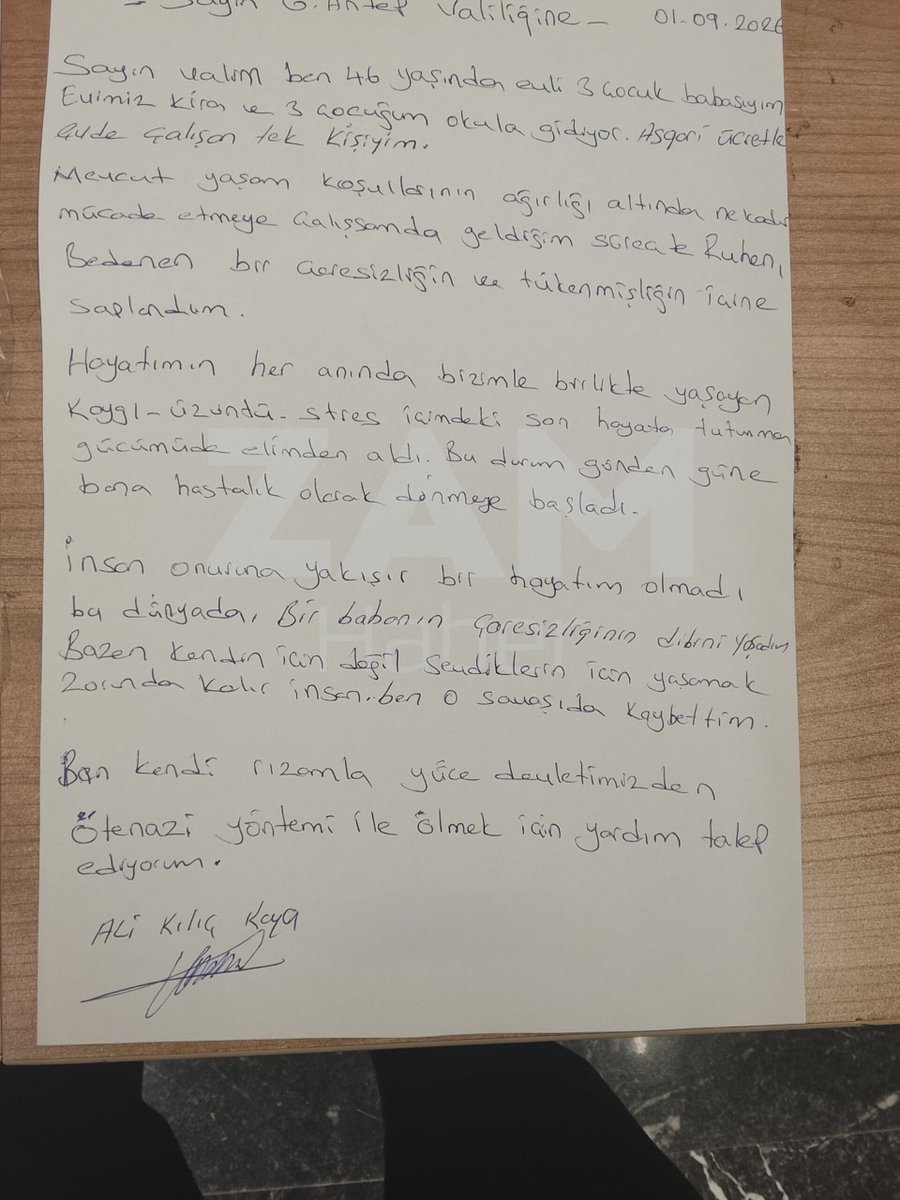 - Sayın G. Antep Valiliğine - 01-09.2026
Sayın valim ben 46 yaşında evli 3 çocuk babasıyım
Evimiz kira ve 3 çocuğum okula gidiyor. Asgari ücretle
evde çalışan tek kişiyim.
Mevcut yaşam koşullarının ağırlığı altında nekadar
mücade etmeye çalışsamda geldiğim süreçte Ruhen,
Bedenen bir çaresizliğin ve tükenmişliğin içine
saplandım.
Hayatımın her anında bizimle birlikte yaşayan
Kaygı-üzüntü-stres içimdeki son hayata tutunma
gücümüde elimden aldı. Bu durum günden güne
bana hastalık olarak dönmeye başladı.
ZAM
Haber
İnsan onuruna yakışır bir hayatım olmadı
bu dünyada, Bir babanın çaresizliğinin dibini yaşadım
Bazen kendin için değil sevdiklerin için yaşamak
Zorunda kalır insan. ben o savaşıda kaybettim.
Ben kendi rızamla yüce devletimizden
Ötenazi yöntemi ile ölmek için yardım talep
ediyorum.
ALi Kılıç Kaya